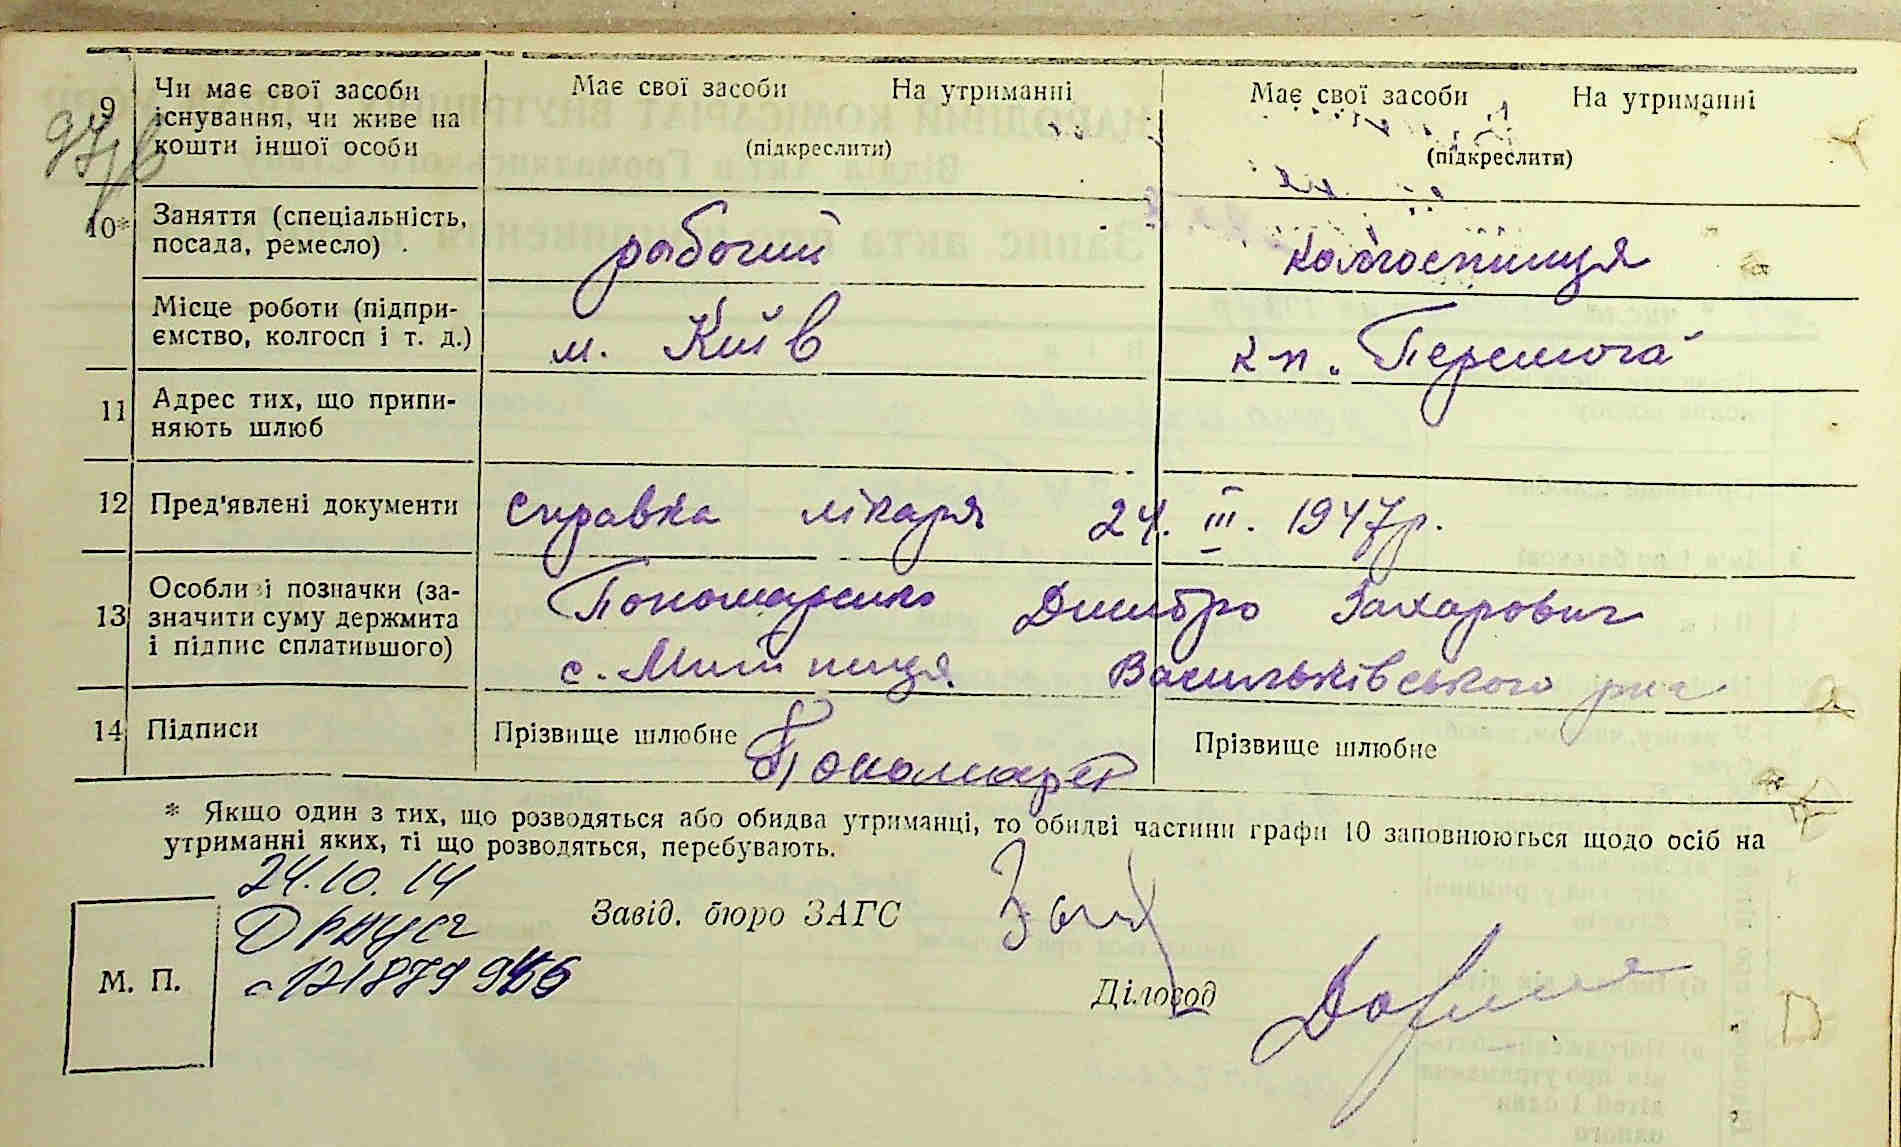 9 Чи має свої засоби існування, чи живе на кошти іншої особи
Має свої засоби На утриманні
(підкреслити)
Має свої засоби На утриманні
(підкреслити)
10* Заняття (спеціальність, посада, ремесло)
рабочий
колгоспниця
Місце роботи (підприємство, колгосп і т. д.)
м. Київ
кп. Перемога
11 Адрес тих, що припиняють шлюб
12 Пред'явлені документи
справка лікаря 24. III. 1947р.
13 Особливі позначки (зазначити суму держмита і підпис сплатившого)
Пономаренко Дмитро Захарович
с. Митниця Васильківського
14 Підписи
Прізвище шлюбне
Прізвище шлюбне
* Якщо один з тих, що розводяться або обидва утриманці, то обидві частини графи 10 заповнюються щодо осіб на
утриманні яких, ті що розводяться, перебувають.
24.10.14
М. П.
Завід. бюро ЗАГС
Діловод